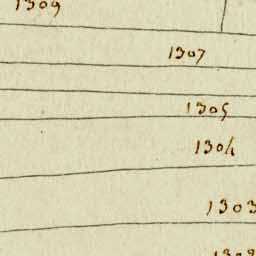 1309
1307
1305
1304
1303